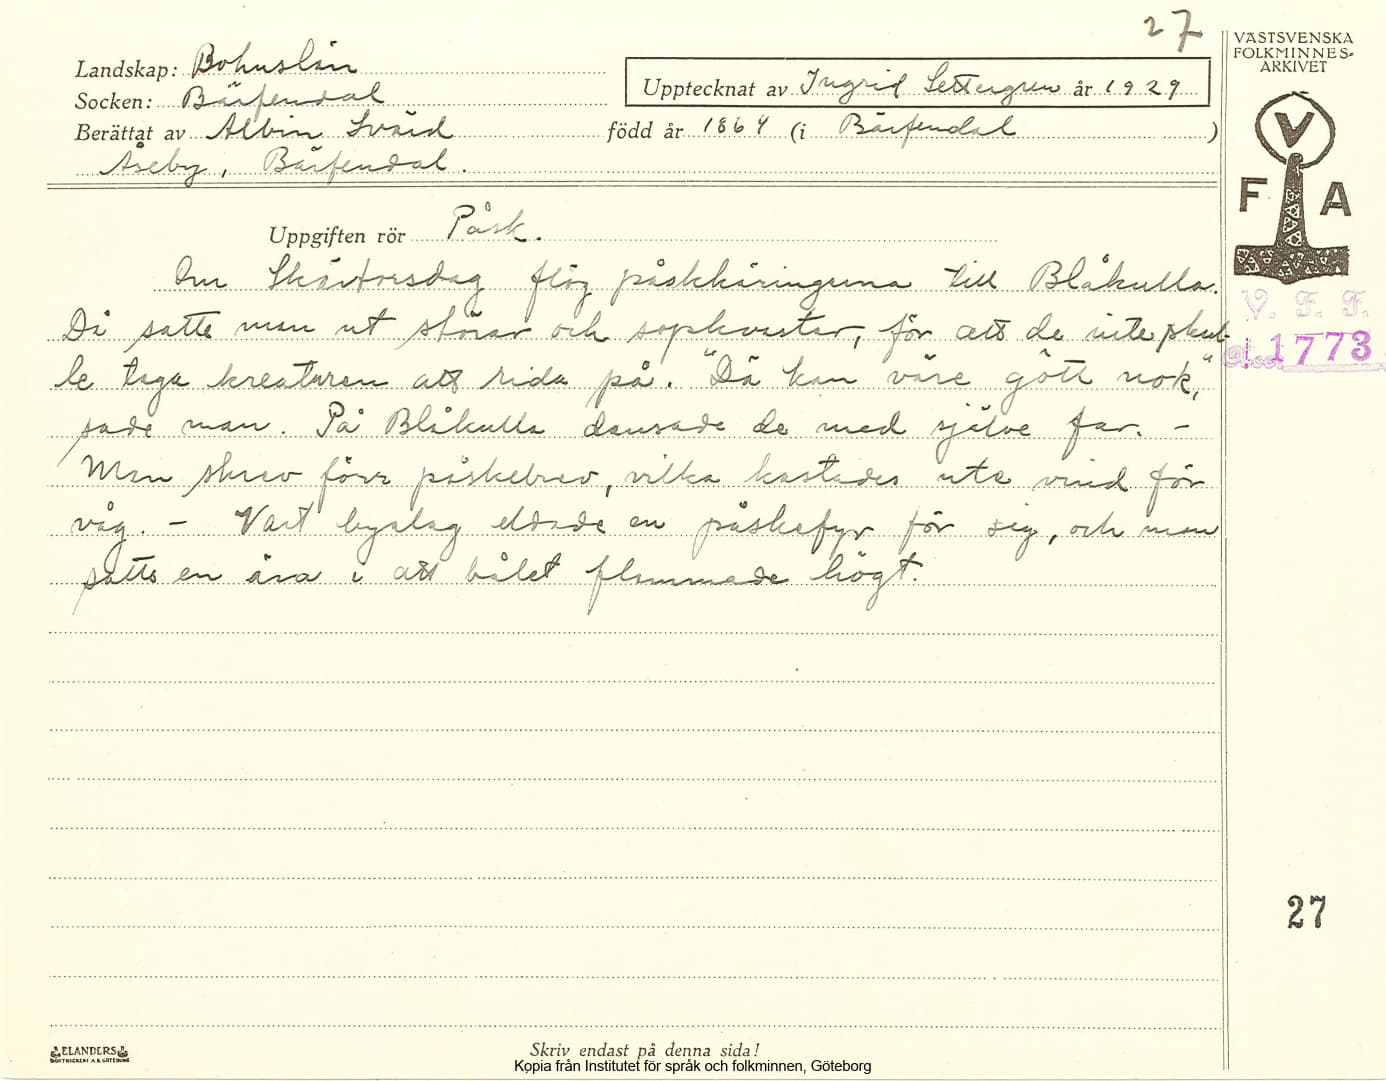 27
VÄSTSVENSKA
FOLKMINNES-
ARKIVET
Landskap: Bohuslän
Upptecknat av Ingrid Settergren år 1929
Socken: Bärfendal
Berättat av Albin Svärd född år 1864 (i Bärfendal )
Åseby, Bärfendal.
V
F A
Uppgiften rör Påsk.
Om Skärtorsdag flög påskkäringerna till Blåkulla.
V. F. F.
Då satte man ut störar och sopkvastar, för att de inte skul-
1773
le taga kreaturen att rida på. "Dä kan väre gött nok,"
sade man. På Blåkulla dansade de med själve far. -
Man skrev förr påskebrev, vilka kastades ute vind för
våg. - Vart byalag eldade en påskefyr för sig, och man
satte en ära i att bålet flammade högt.
27
ELANDERS
BOKTRYCKERI A.B. GÖTEBORG
Skriv endast på denna sida!
Kopia från Institutet för språk och folkminnen, Göteborg